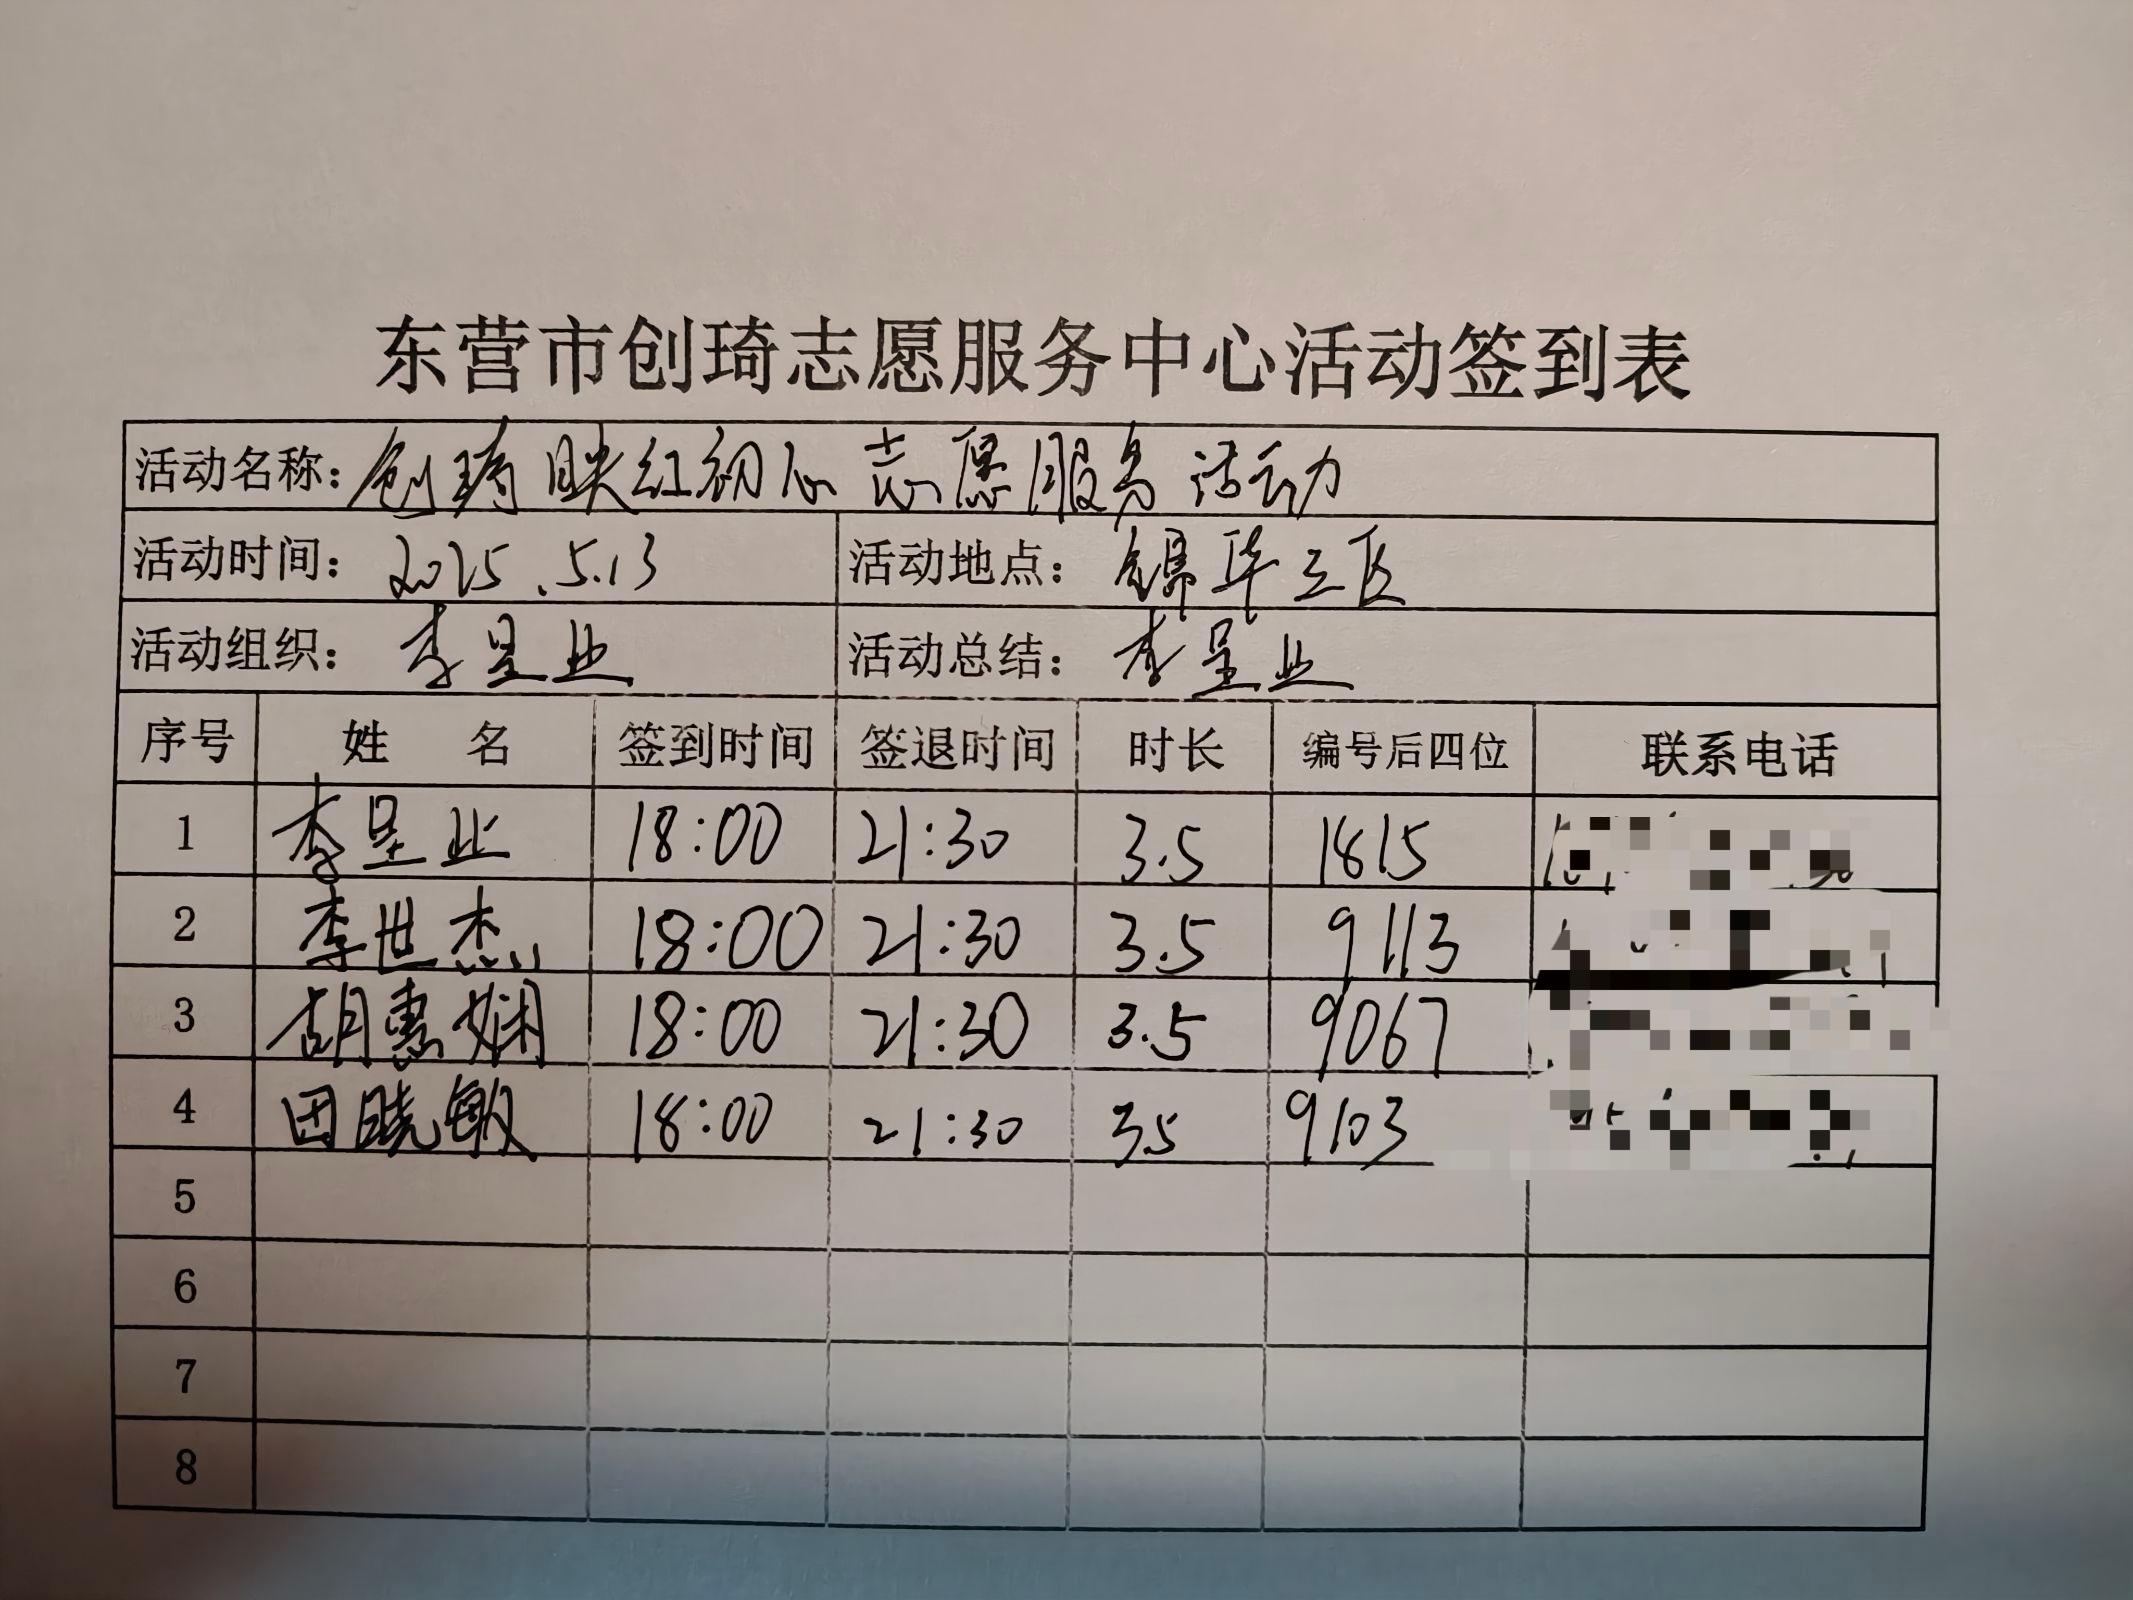 东营市创琦志愿服务中心活动签到表
活动名称：创琦映红初心志愿服务活动
活动时间：2025.5.13 活动地点：锦华三区
活动组织：李呈业 活动总结：李呈业
序号 姓名 签到时间 签退时间 时长 编号后四位 联系电话
1 李呈业 18:00 21:30 3.5 1815
2 李世杰 18:00 21:30 3.5 9113
3 胡惠娴 18:00 21:30 3.5 9067
4 田晓敏 18:00 21:30 3.5 9103
5
6
7
8